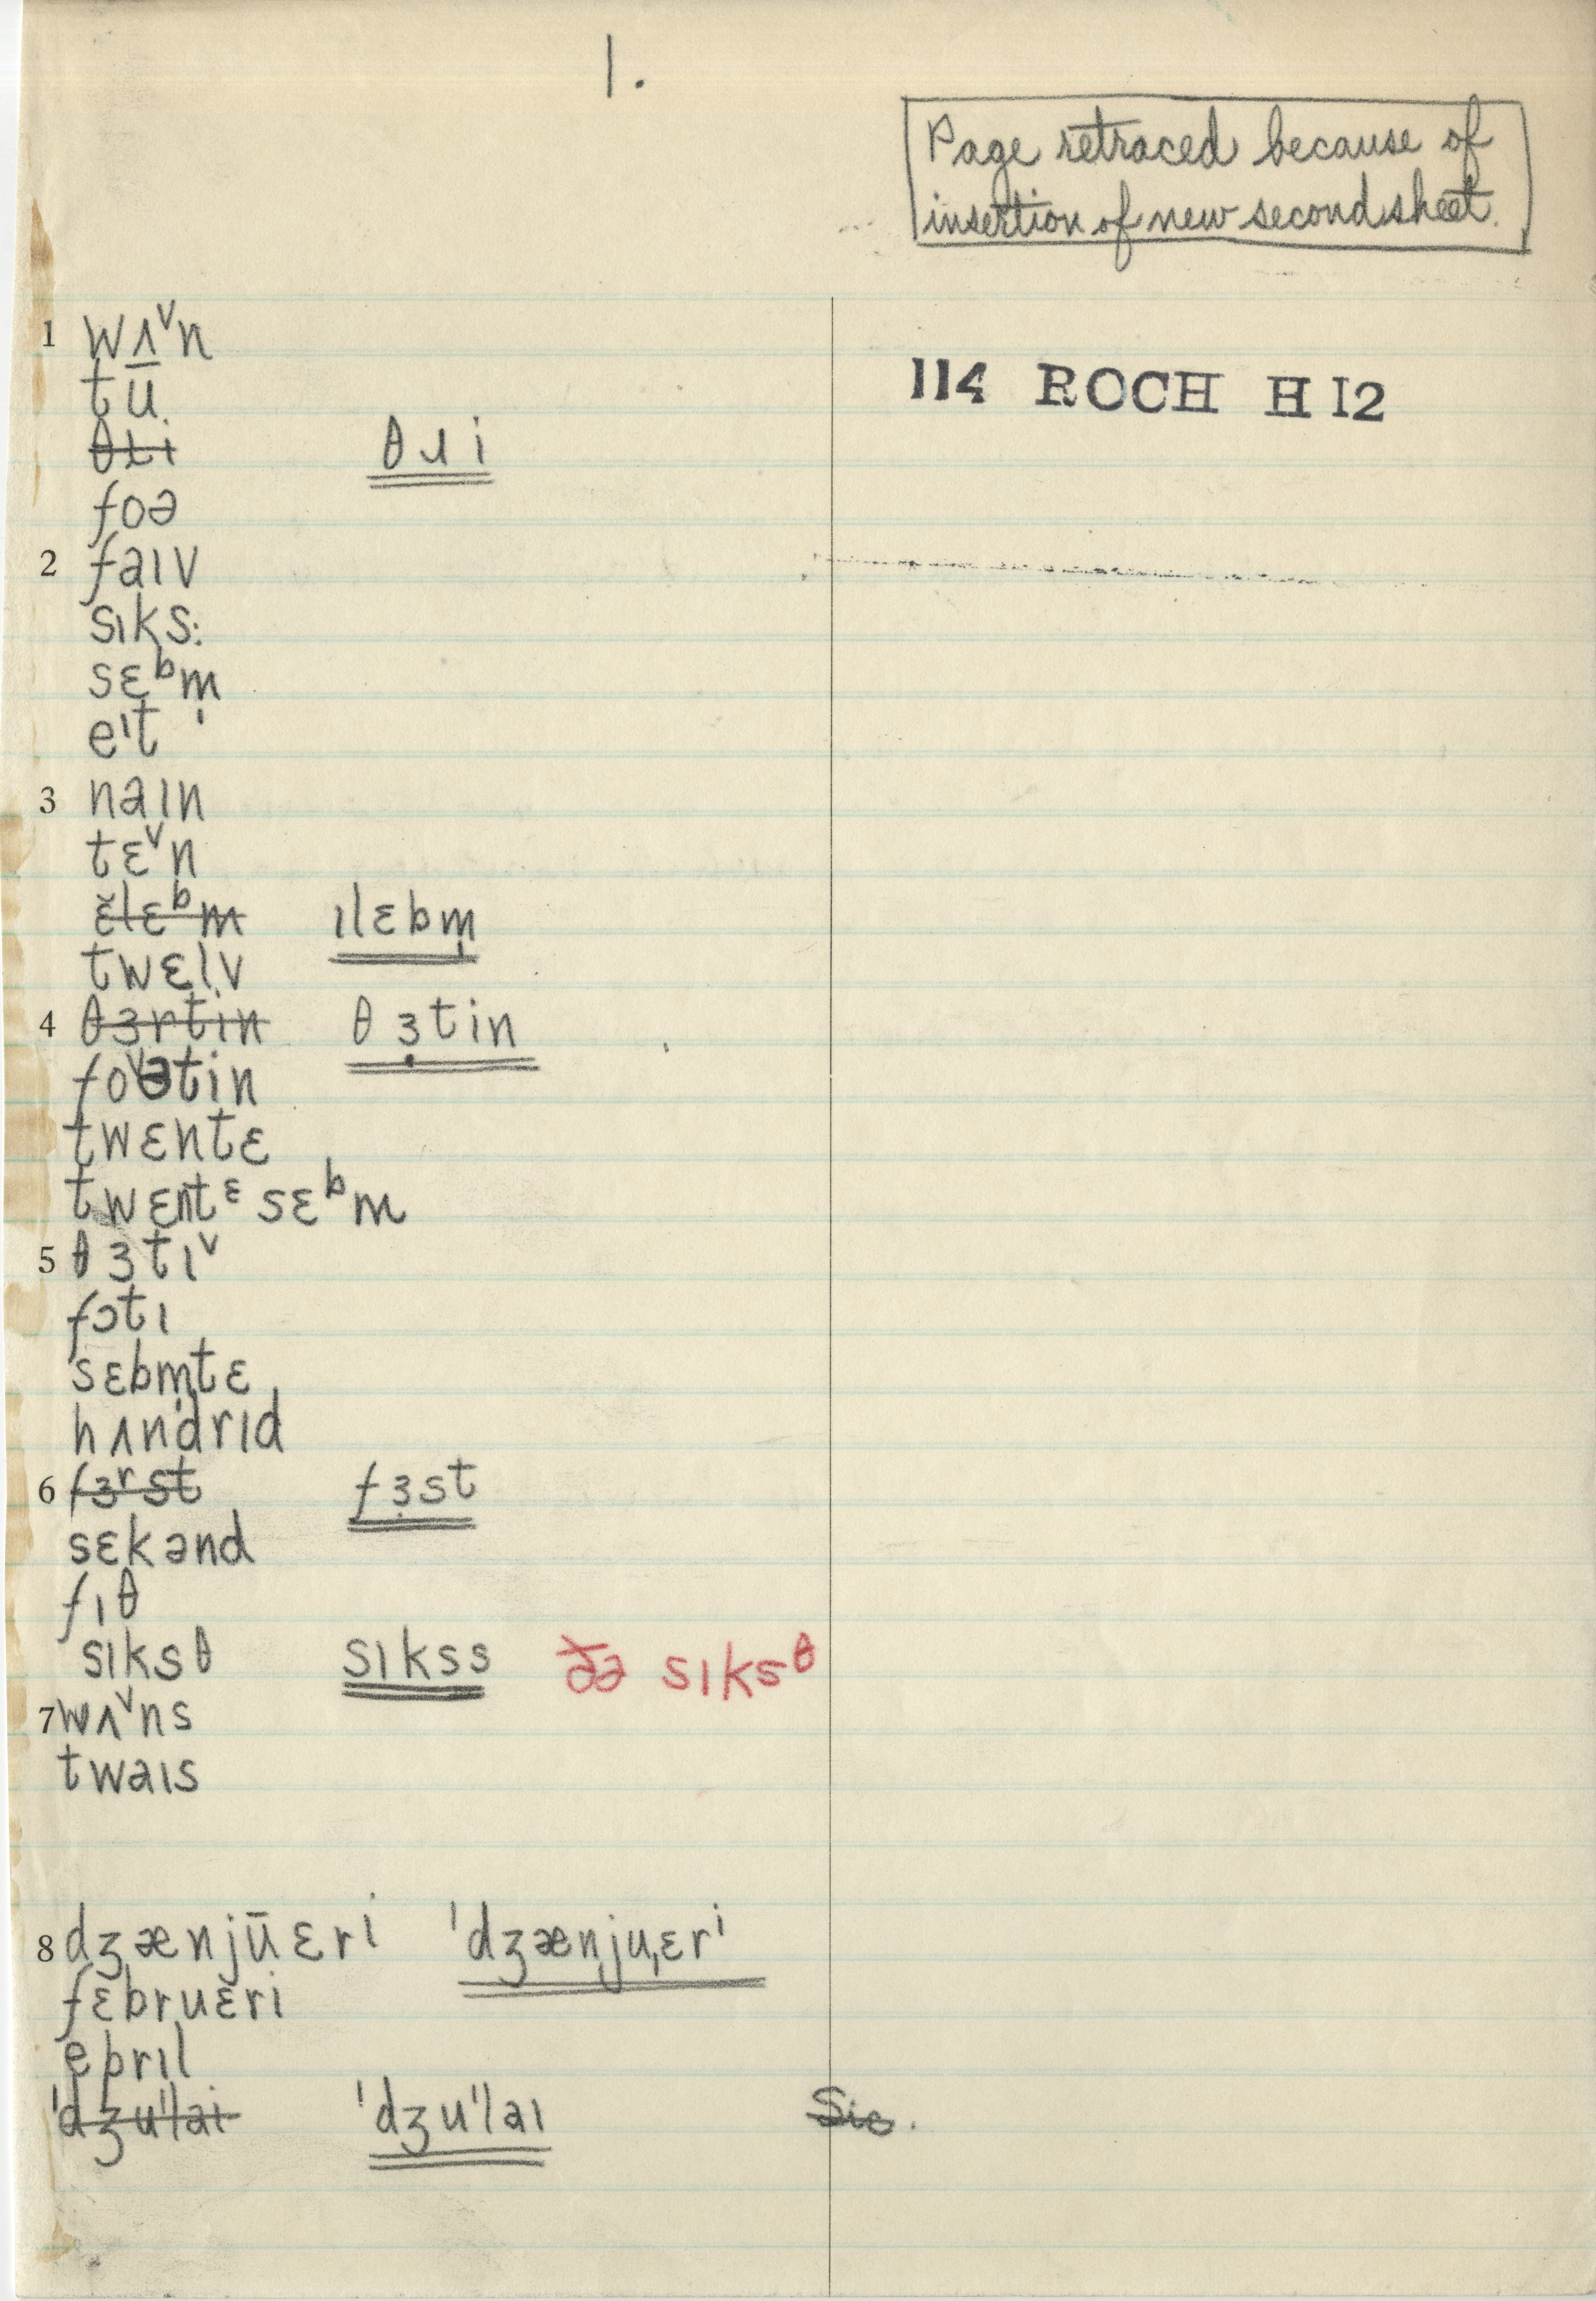 1.
Page retraced because of
insertion of new second sheet.
114 ROCH H I2
1 wʌ̱ᵛn
tū
θɹi θɹi
foə
2 faɪv
sɪks:
sɛᵇm̩
eᶦt
3 naɪn
tɛᵛn
ɛ̆lɛᵇm ɪlɛbm̩
twɛlv
4 θɜrtin θɜ̣tin
foᵛətin
twɛntɛ
twɛntᵋ sɛᵇm
5 θɜtɪᵛ
fɔtɪ
sɛbm̩tɛ
hʌndrɪd
6 fɜʳst fɜ̣st
sɛkənd
fɪθ
sɪksθ sɪkss ðə sɪksᶿ
7 wʌᵛns
twaɪs
8 dʒænjūɛri ˈdʒænjuˌɛrⁱ
fɛbruɛri
eprɪl
ˈdʒuˈlai ˈdʒuˈlaɪ Sic.